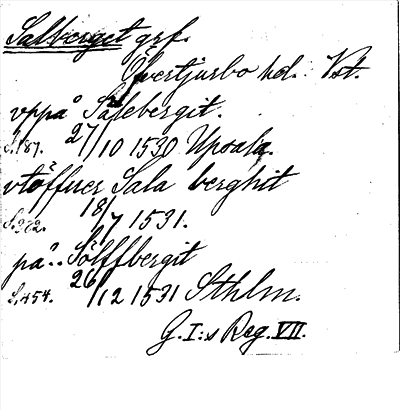 Salberget grf.
Övertjurbo hd. Vst.
vppå Salebergit.
S.187. 27/10 1530 Upsala.
vtöffuer Sala berghit
S.372. 18/7 1531.
på.. Sölffbergit
S.454. 26/12 1531 Sthlm.
G.I:s Reg. VII.